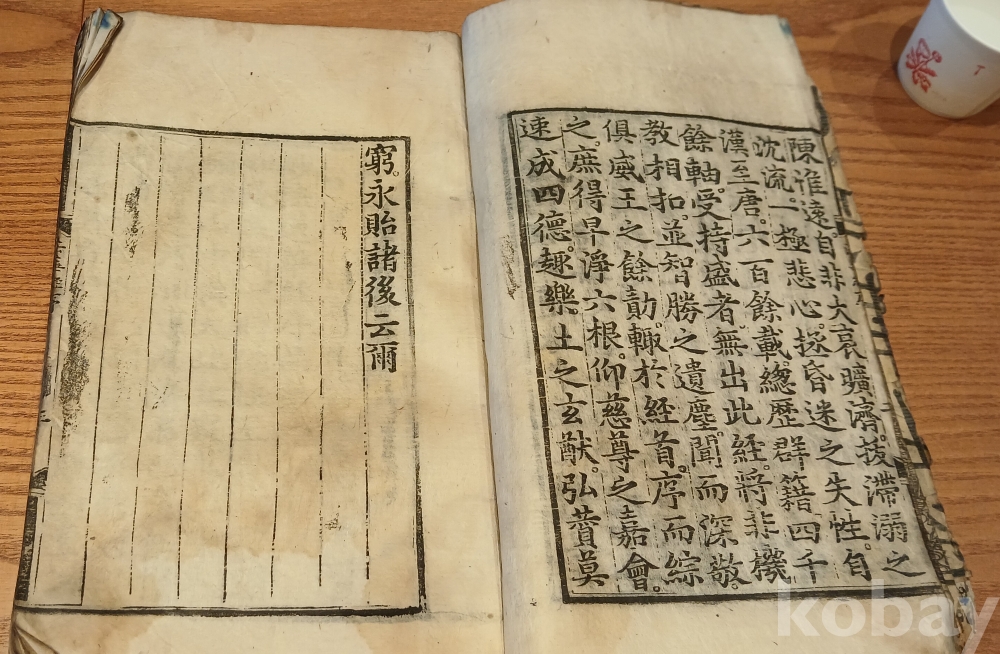 陳誰遠自非大哀曠濟。拔滯溺之
沈流。一極悲心。拯昏迷之失性。自
漢至唐。六百餘載緫歷群籍四千
餘軸。受持盛者。無出此經。將非機
教相扣。並智勝之遺塵。聞而深敬。
俱威王之餘勣。輙於經首。序而綜
之。庶得早淨六根。仰慈尊之嘉會。
速成四德。趣樂土之玄猷。弘賛莫
窮。永貽諸後云爾
kobay